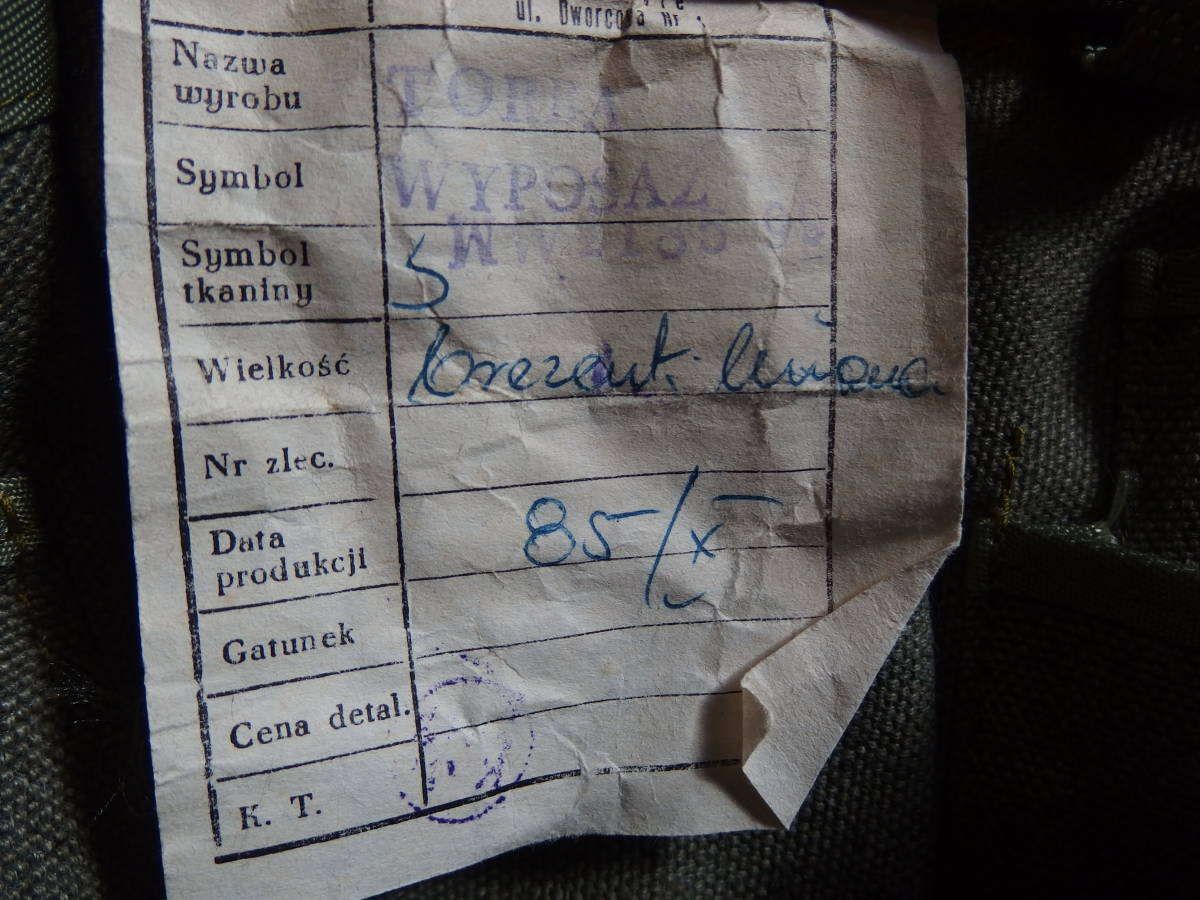 ul. Dworcowa Nr
Nazwa
wyrobu
TORBA
Symbol
WYPOSAZ
Symbol
tkaniny
5
Wielkość
brezent.
Nr zlec.
Data
produkcji
85/X
Gatunek
Cena detal.
K. T.